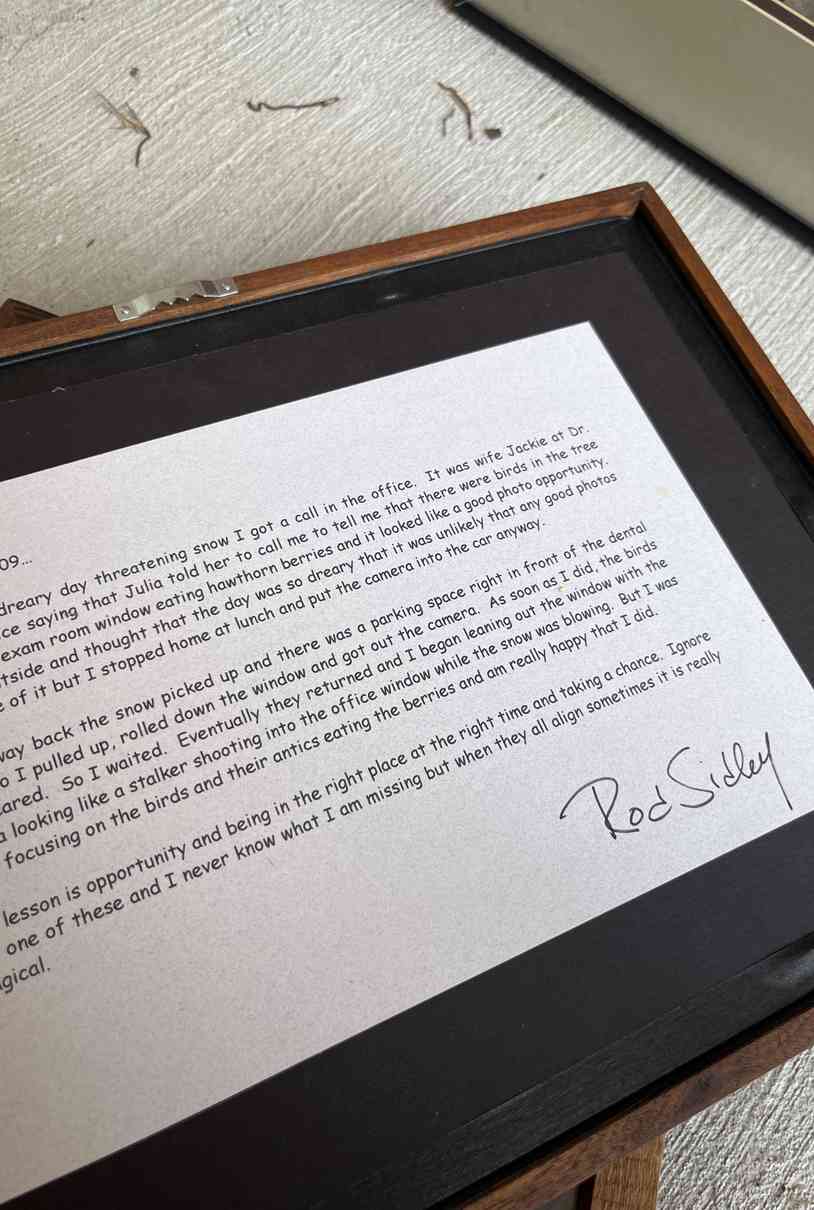 09...
dreary day threatening snow I got a call in the office. It was wife Jackie at Dr.
ce saying that Julia told her to call me to tell me that there were birds in the tree
exam room window eating hawthorn berries and it looked like a good photo opportunity.
tside and thought that the day was so dreary that it was unlikely that any good photos
of it but I stopped home at lunch and put the camera into the car anyway.
way back the snow picked up and there was a parking space right in front of the dental
o I pulled up, rolled down the window and got out the camera. As soon as I did, the birds
ared. So I waited. Eventually they returned and I began leaning out the window with the
a looking like a stalker shooting into the office window while the snow was blowing. But I was
focusing on the birds and their antics eating the berries and am really happy that I did.
lesson is opportunity and being in the right place at the right time and taking a chance. Ignore
one of these and I never know what I am missing but when they all align sometimes it is really
gical.
Rod Sidley